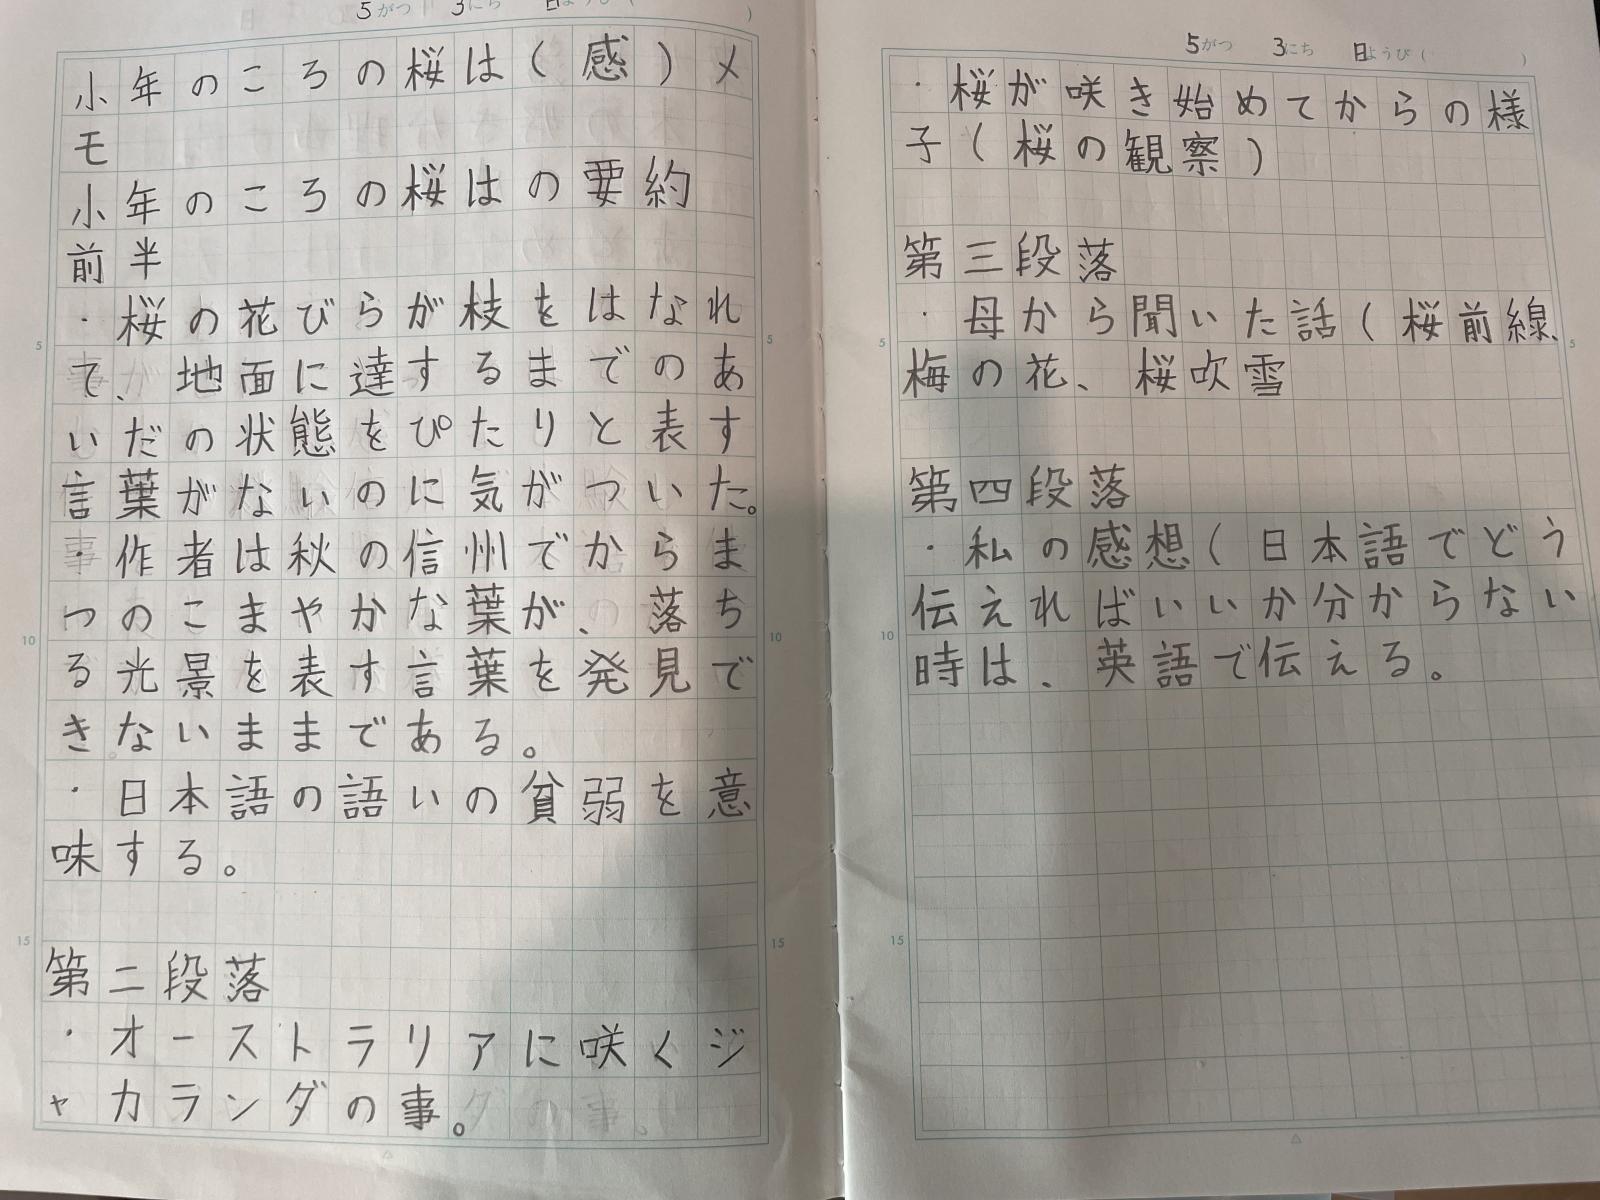 5がつ 3にち 日ようび( )
小年のころの桜は(感)メ
モ
小年のころの桜はの要約
前半
・桜の花びらが枝をはなれ
て、地面に達するまでのあ
いだの状態をぴたりと表す
言葉がないのに気がついた。
・作者は秋の信州でからま
つのこまやかな葉が、落ち
る光景を表す言葉を発見で
きないままである。
・日本語の語いの貧弱を意
味する。
第二段落
・オーストラリアに咲くジ
ャカランダの事。
5がつ 3にち 日ようび( )
・桜が咲き始めてからの様
子(桜の観察)
第三段落
・母から聞いた話(桜前線、
梅の花、桜吹雪
第四段落
・私の感想(日本語でどう
伝えればいいか分からない
時は、英語で伝える。
5
10
15
5
10
15
5
10
15
5